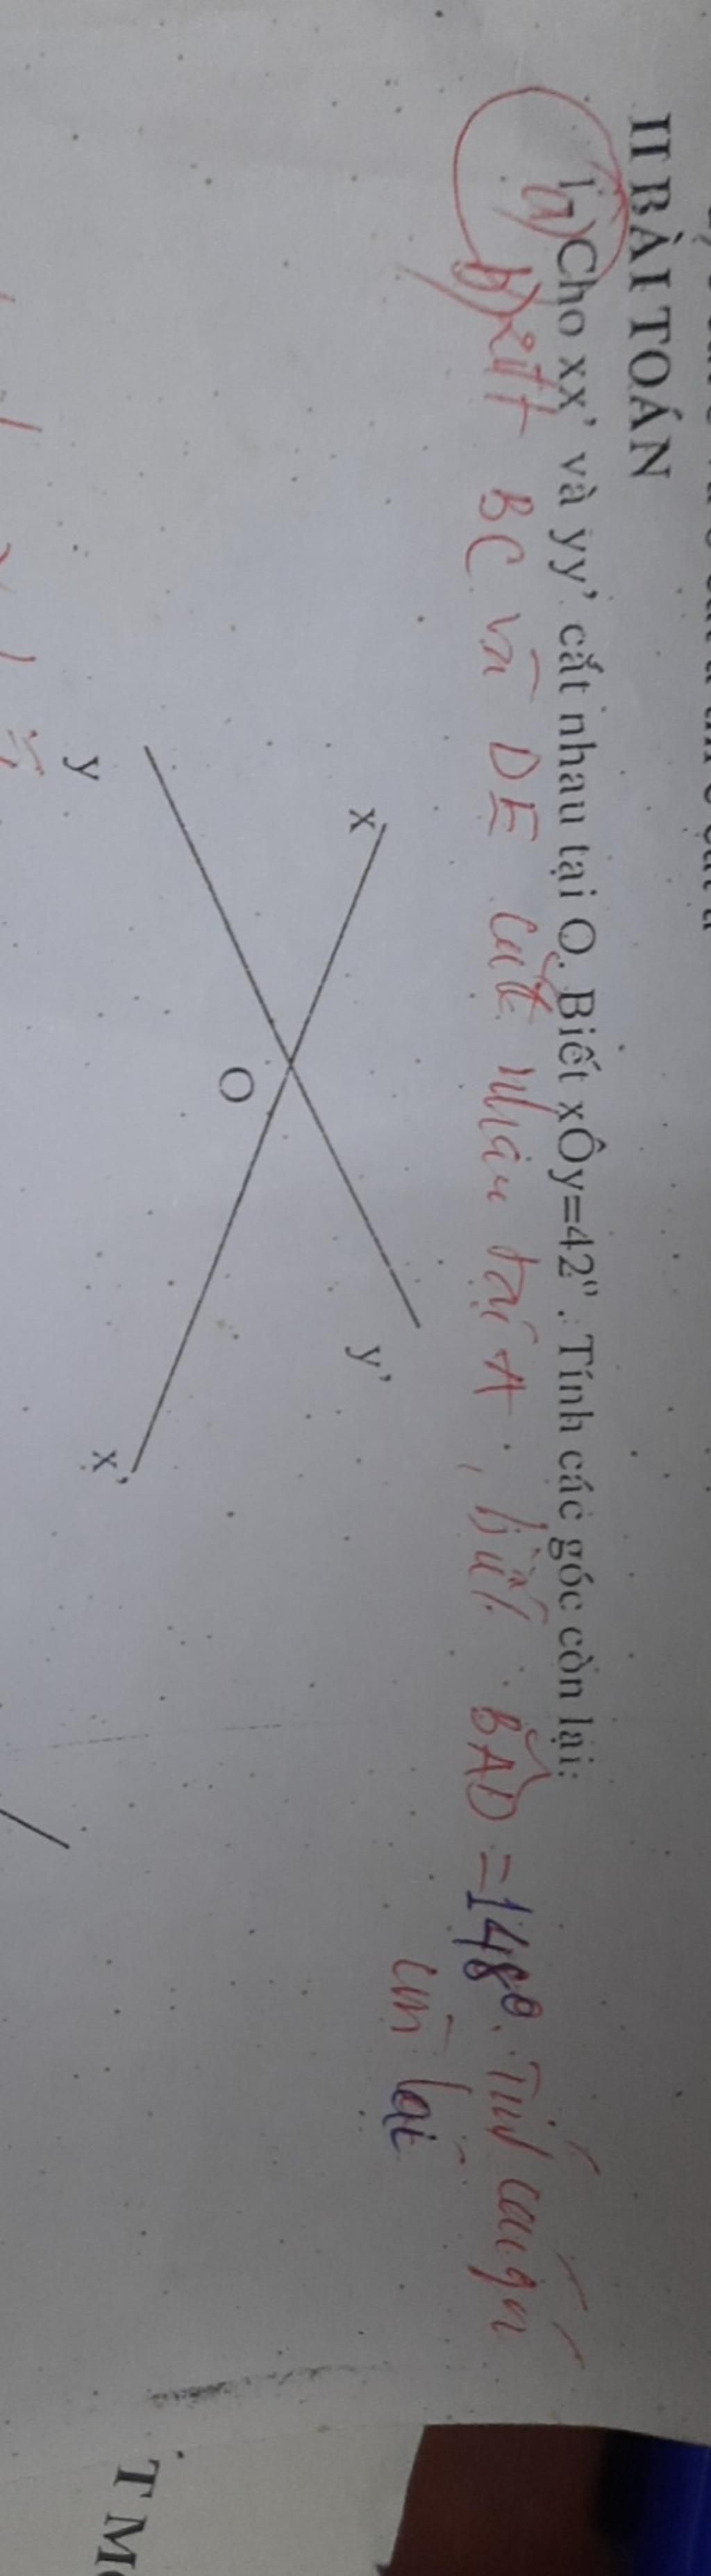 II BÀI TOÁN
1- a) Cho xx' và yy' cắt nhau tại O. Biết xÔy=42⁰. Tính các góc còn lại:
b) BC và DE cắt nhau tại A, biết BÂD = 148⁰. Tính các góc
còn lại
x
y'
O
y
x'
T M